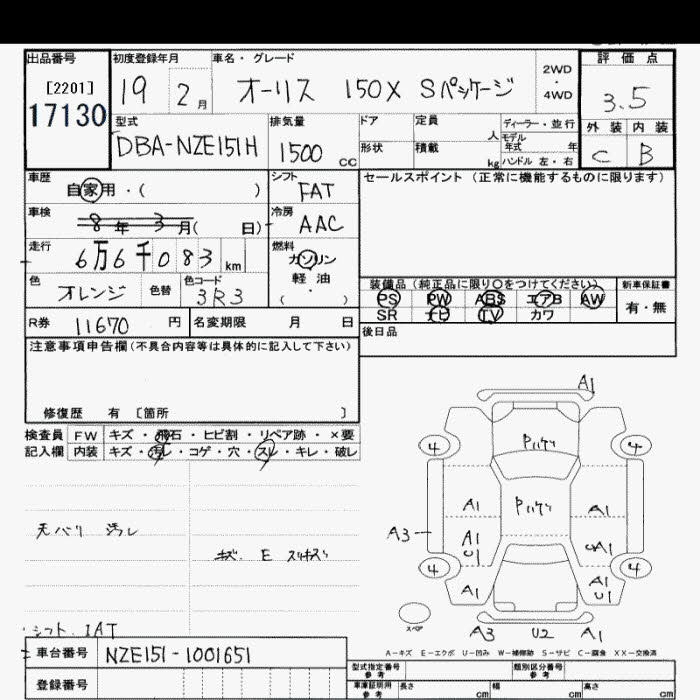 出品番号
[2201]
17130
初度登録年月
19 2月
車名・グレード
オーリス 150X Sパッケージ
2WD
・
4WD
評価点
3.5
外装 内装
C B
型式
DBA-NZE151H
排気量
1500 CC
ドア
定員 人
形状
積載 kg
ディーラー・並行
モデル
年式 年
ハンドル 左・右
車歴
自家用・( )
車検
8年 3月( 日)
走行
6万6千083 km
色
オレンジ
色替
色コード
3R3
シフト
FAT
冷房
AAC
燃料
ガソリン
軽油
( ・ )
セールスポイント (正常に機能するものに限ります)
装備品 (純正品に限り○をつけてください)
PS PW ABS エアB AW
SR ナビ TV カワ
新車保証書
有・無
後日品
R券 11670 円
名変期限 月 日
注意事項申告欄(不具合内容等は具体的に記入して下さい)
修復歴 有 [箇所 ]
検査員
記入欄
FW キズ・飛石・ヒビ割・リペア跡・×要
内装 キズ・汚レ・コゲ・穴・スレ・キレ・破レ
天バリ 汚レ
シフト. IAT
A1
4 4
A1 A1
A3 A1 U1
4 4
A1 A1 U1
スペア
A3 U2 A1
A-キズ E-エクボ U-凹み W-補修跡 S-サビ C-腐食 XX-交換済
車台番号 NZE151-1001651
登録番号
型式指定番号
参考
類別区分番号
参考
車庫証明用
参考
長さ cm
幅 cm
高さ cm